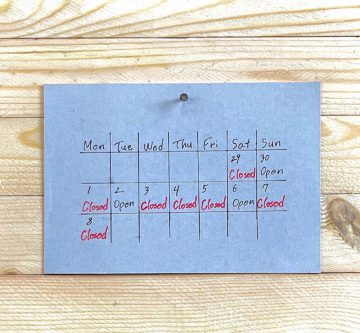 Mon Tue Wed Thu Fri Sat Sun
29 30
Closed Open
1 2 3 4 5 6 7
Closed Open Closed Closed Closed Open Closed
8
Closed